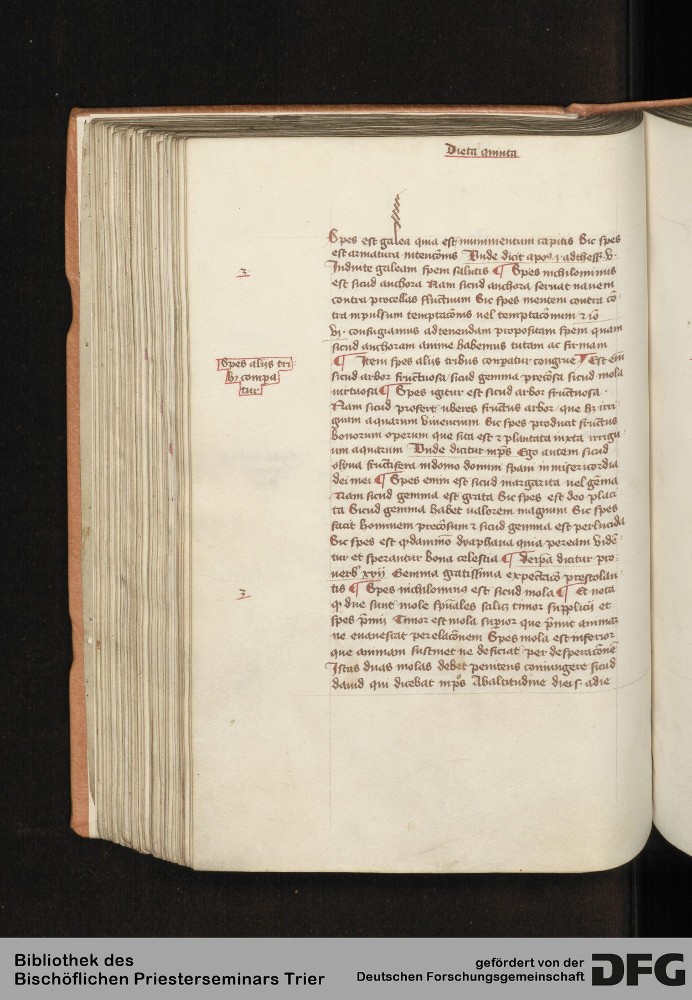 Dieta quinta
Spes est galea quia est munimentum capitis Sic spes
est armatura intencõis Vnde dicit apoꝰ ad thess. v.
Induite galeam spem salutis ¶ Spes nichilominus
3.
est sicud anchora Nam sicud anchora seruat nauem
contra procellas fluctuum Sic spes mentem contra cõ
tra inpulsum temptacõnis uel temptacõnum
vj. confugiamus ad tenendam propositam spem quam
sicud anchoram anime habemus tutam ac firmam
¶ Item spes alijs tribus conpatur congrue ¶ Est eĩ
Spes alijs tri
bꝫ compa
tur
sicud arbor fructuosa sicud gemma precõsa sicud mola
uirtuosa ¶ Spes igitur est sicud arbor fructuosa.
Nam sicud profert uberes fructus arbor que hꝫ irri
guum aquarum viuencium Sic spes producit fructus
bonorum operum que sita est ⁊ plantata iuxta irrigu
um aquarum Vnde dicitur in pˢ Ego autem sicud
oliua fructifera in domo domini spaui in misericordia
dei mei ¶ Spes enim est sicud margarita uel gẽma
Nam sicud gemma est grata Sic spes est deo placi
ta Sicud gemma habet ualorem magnum Sic spes
facit hominem precõsum ⁊ sicud gemma est perlucida
Sic spes est qdammõ dyaphana quia per eam vidẽ
tur et sperantur bona celestia ¶ de spe dicitur pro
uerbˢ xvij Gemma gratissima expectacõ prestolan
tis ¶ Spes nichilominus est sicud mola ¶ Et nota
3.
ꝙ due sunt mole spũales salicꝫ timor supplicij et
spes p̃mij Timor est mola supior que p̃mit animam
ne euanescat per elacõnem Spes mola est inferior
que animam sustinet ne deficiat per desperacõne
Istas duas molas debet penitens coniungere sicud
dauid qui dicebat in pˢ Ab altitudine diei s. a die
Bibliothek des
Bischöflichen Priesterseminars Trier
gefördert von der
Deutschen Forschungsgemeinschaft
DFG